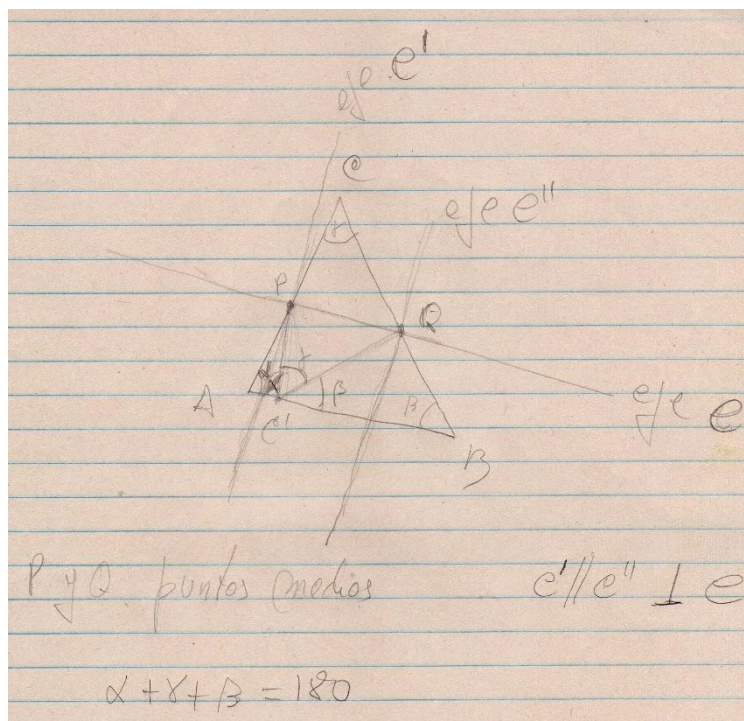 eje e'
C
eje e''
P
Q
γ
α
A
β
β
eje e
C'
B
P y Q puntos medios e' // e'' ⊥ e
α + γ + β = 180